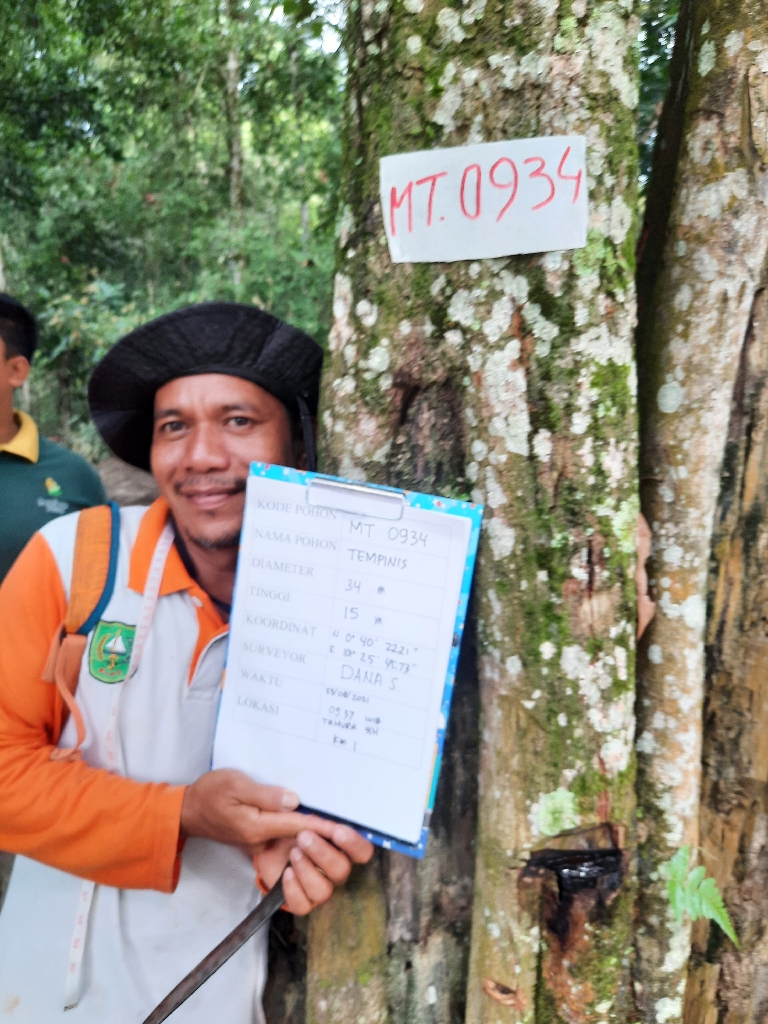 MT. 0934
KODE POHON MT 0934
NAMA POHON TEMPINIS
DIAMETER 34 m
TINGGI 15 m
KOORDINAT N 0° 40' 22.21"
SURVEYOR DANA S
WAKTU 13/08/2021
09.37 WIB
LOKASI TAHURA SSH
KM 1